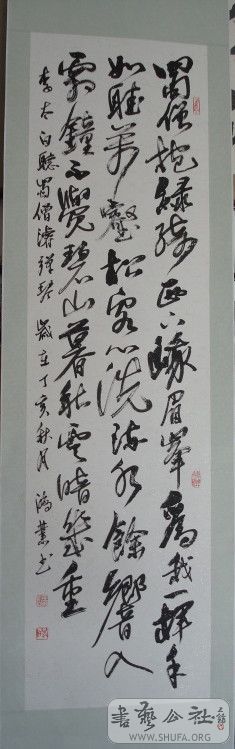 蜀僧抱綠綺西下峨眉峰為我一揮手
如聽萬壑松客心洗流水餘響入
霜鐘不覺碧山暮秋雲暗幾重
李太白聽蜀僧濬彈琴 歲在丁亥秋月 鴻業书
書藝公社
WWW.SHUFA.ORG